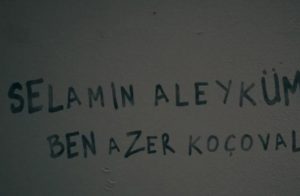 SELAMIN ALEYKÜM
BEN AZER KOÇOVAL